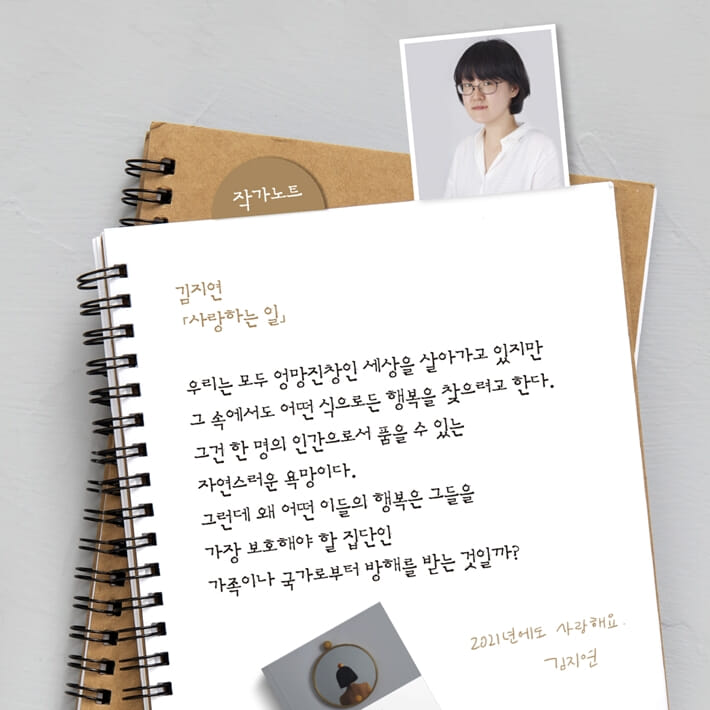 작가노트
김지연
「사랑하는 일」
우리는 모두 엉망진창인 세상을 살아가고 있지만
그 속에서도 어떤 식으로든 행복을 찾으려고 한다.
그건 한 명의 인간으로서 품을 수 있는
자연스러운 욕망이다.
그런데 왜 어떤 이들의 행복은 그들을
가장 보호해야 할 집단인
가족이나 국가로부터 방해를 받는 것일까?
2021년에도 사랑해요.
김지연